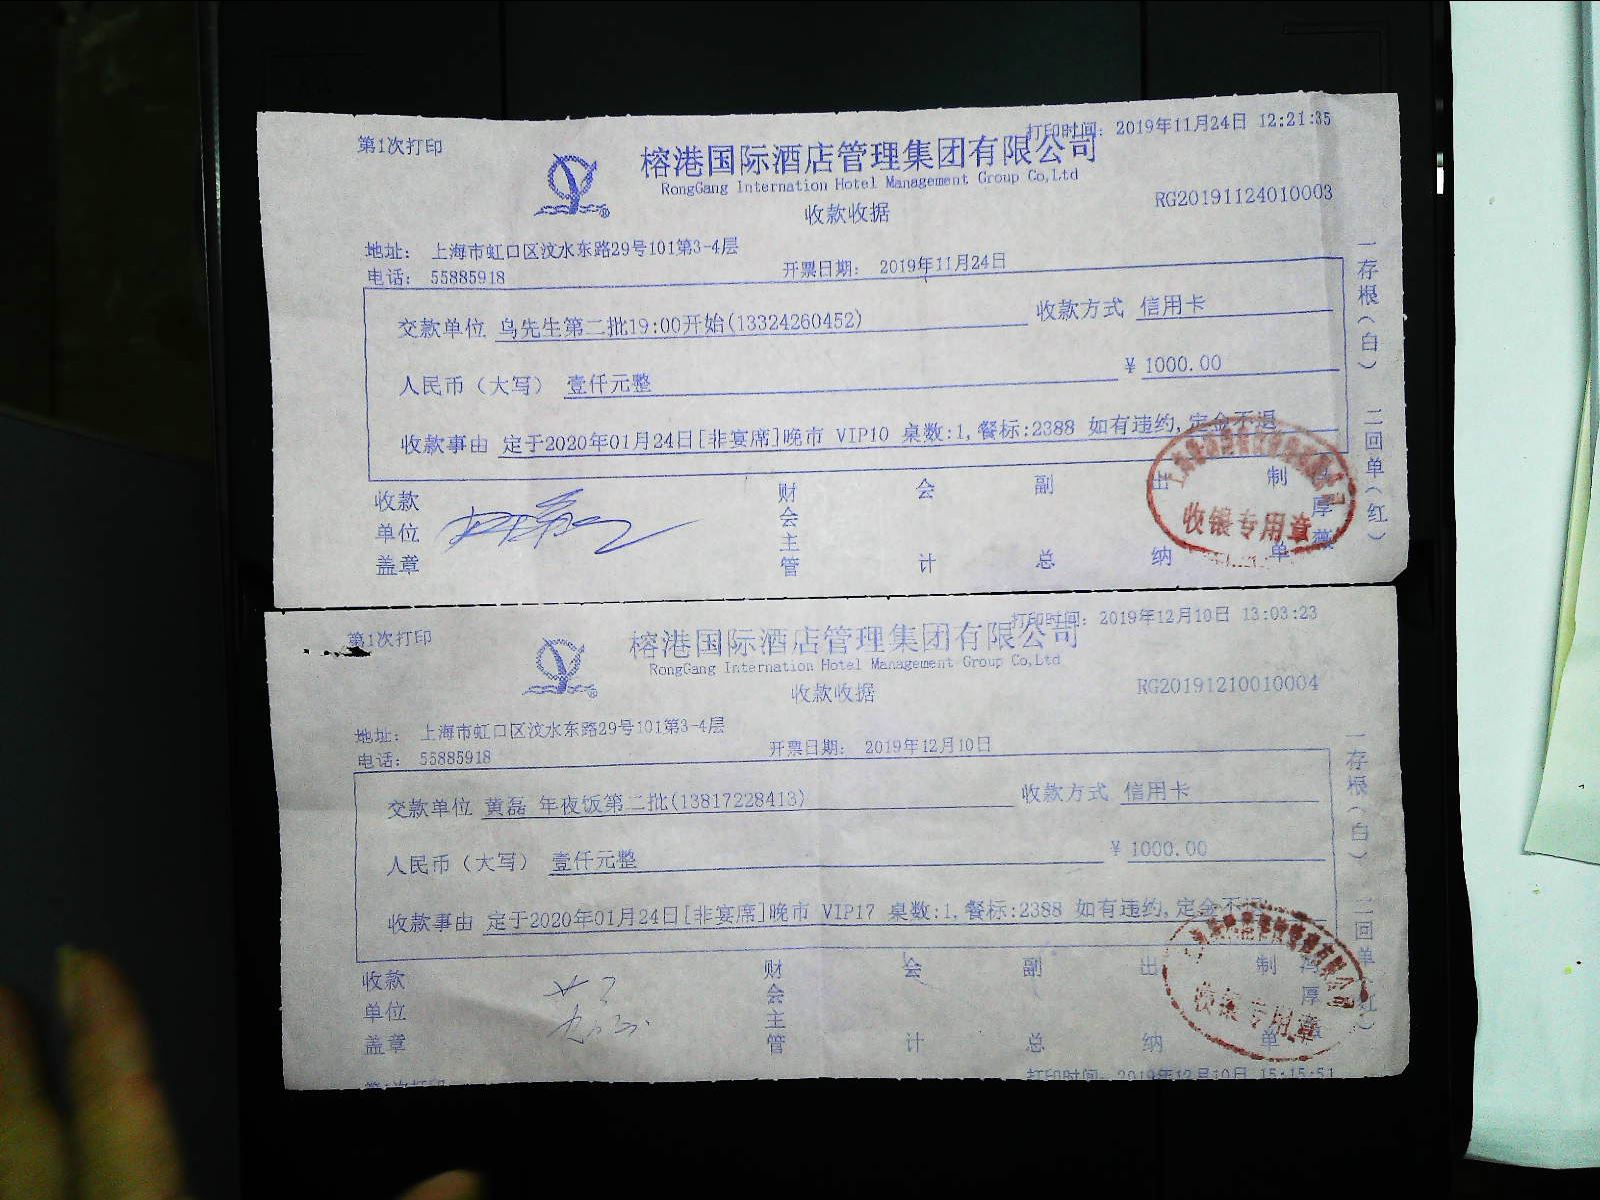 第1次打印
打印时间: 2019年11月24日 12:21:35
榕港国际酒店管理集团有限公司
RongGang Internation Hotel Management Group Co,Ltd
收款收据
RG20191124010003
地址: 上海市虹口区汶水东路29号101第3-4层
电话: 55885918
开票日期: 2019年11月24日
交款单位 乌先生第二批19:00开始(13324260452) 收款方式 信用卡
人民币（大写） 壹仟元整 ¥ 1000.00
收款事由 定于2020年01月24日[非宴席]晚市 VIP10 桌数:1,餐标:2388 如有违约,定金不退
收款单位盖章 财会主管 会计 副总 出纳 制单 厚薇
收银专用章
一存根(白) 二回单(红)
第1次打印
打印时间: 2019年12月10日 13:03:23
榕港国际酒店管理集团有限公司
RongGang Internation Hotel Management Group Co,Ltd
收款收据
RG20191210010004
地址: 上海市虹口区汶水东路29号101第3-4层
电话: 55885918
开票日期: 2019年12月10日
交款单位 黄磊 年夜饭第二批(13817228413) 收款方式 信用卡
人民币（大写） 壹仟元整 ¥ 1000.00
收款事由 定于2020年01月24日[非宴席]晚市 VIP17 桌数:1,餐标:2388 如有违约,定金不
收款单位盖章 财会主管 会计 副总 出纳 制单 厚
收银专用章
一存根(白) 二回单(红)
第1次打印
打印时间: 2019年12月10日 15:15:51